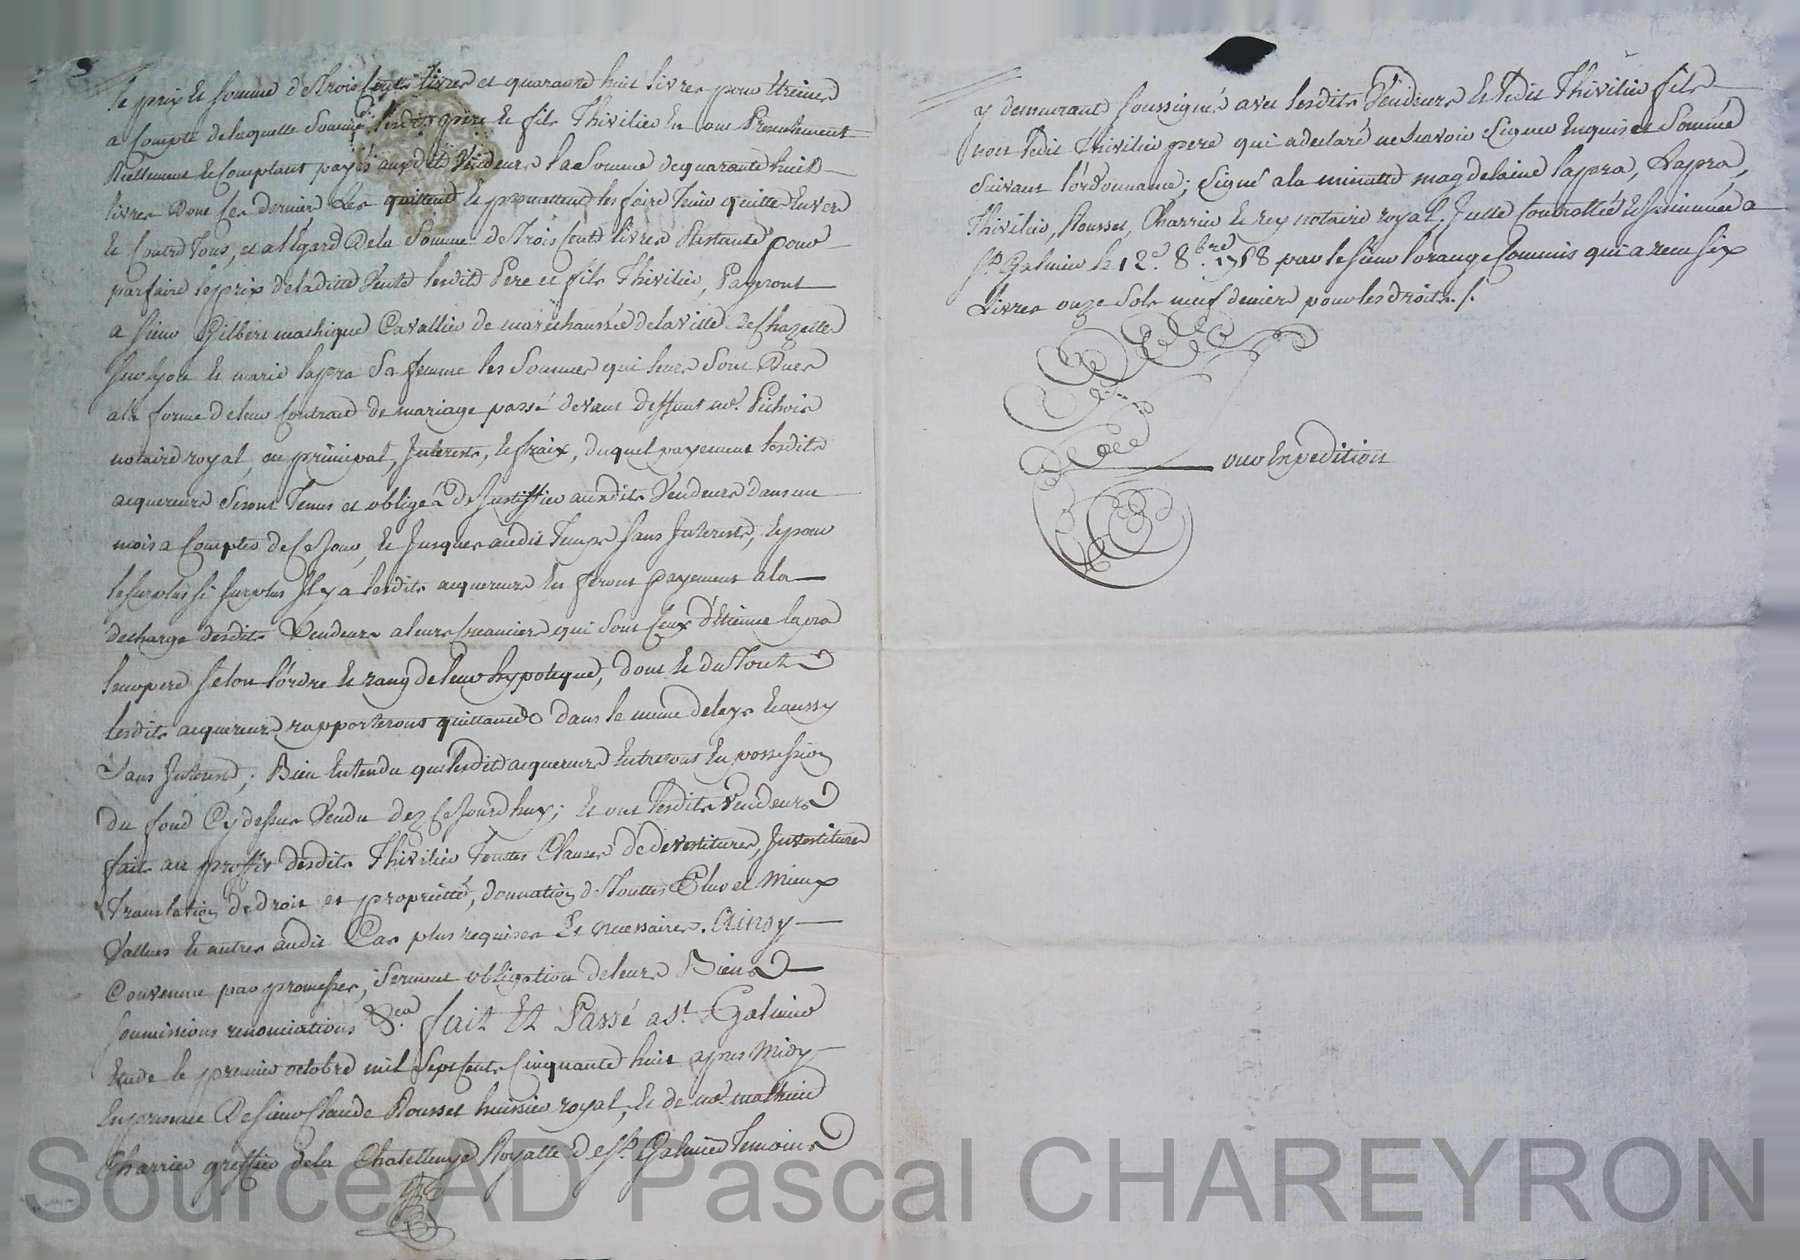 le prix et somme de trois cents livres et quarante huit livres pour étreines
a compte de laquelle somme lesdits pere et fils Thivilier en ont Presentement
Reellement et comptant payés auxdits Vendeurs la somme de quarante huit
livres dont ces derniers les quittent et promettent les faire tenir quitte envers
et contre tous, et a l'égard de la somme de trois cents livres Restante pour
parfaire le prix de la ditte Vente lesdits Pere et fils Thivilier, Payeront
a sieur Gilbert machique Cavallier de maréchaussée de la ville de Chazelles
sur lyon et marie lapra sa femme les sommes qui leurs sont Dues
a la forme de leur Contract de mariage passé devant deffunt me. Pichois
notaire royal, en principal, Interests, et fraix, duquel payement lesdits
acquereurs seront Tenus et obligés de justiffier auxdits Vendeurs dans un
mois a compter de ce jour, et jusques audit Temps sans Interests, et pour
le surplus si surplus il y a lesdits acquereurs en feront payement a la
decharge desdits Vendeurs a leurs creanciers qui sont ceux d'Etienne lapra
leur pere selon l'ordre et rang de leur hypoteque, dont et du tout
lesdits acquereurs rapporterons quittance dans le meme delays et aussy
sans Interest; Bien entendu que lesdits acquereurs entreront en possession
du fond Cy dessus Vendu dez ce jourd'huy; et ont lesdits Vendeurs
fait au proffit desdits Thivilier Touttes Clauses de devestitures, Investitures
Translation de droit et proprietté, donnation de touttes Plus et Mieux
Vallues et autres audit Cas plus requises Et necessaires. Ainsy
Convenu par promesses, serment obligation de leurs Biens
soumissions renonciations &ca. fait Et Passé a St. Galmier
Etude le premier octobre mil sept cents cinquante huit apres Midy
En presence De sieur Claude Rousset huissier royal, et de me. mathieu
Charrier greffier de la Chatellenye Royalle de St. Galmier Temoins
y demeurant soussignés avec lesdits Vendeurs et ledit Thivilier fils
non ledit Thivilier pere qui a declaré ne scavoir signer Enquis et Sommé
suivant l'ordonnance; signé a la minutte magdelaine lapra, Lapra,
Thivilier, Rousset, Charrier et rey notaire royal. Icelle Controllée et Insinuée a
St. Galmier le 12e. 8bre. 1758 par le sieur lorange Commis qui a recu six
Livres onze sols neuf deniers pour les droits ./.
our Expedition
Source AD Pascal CHAREYRON